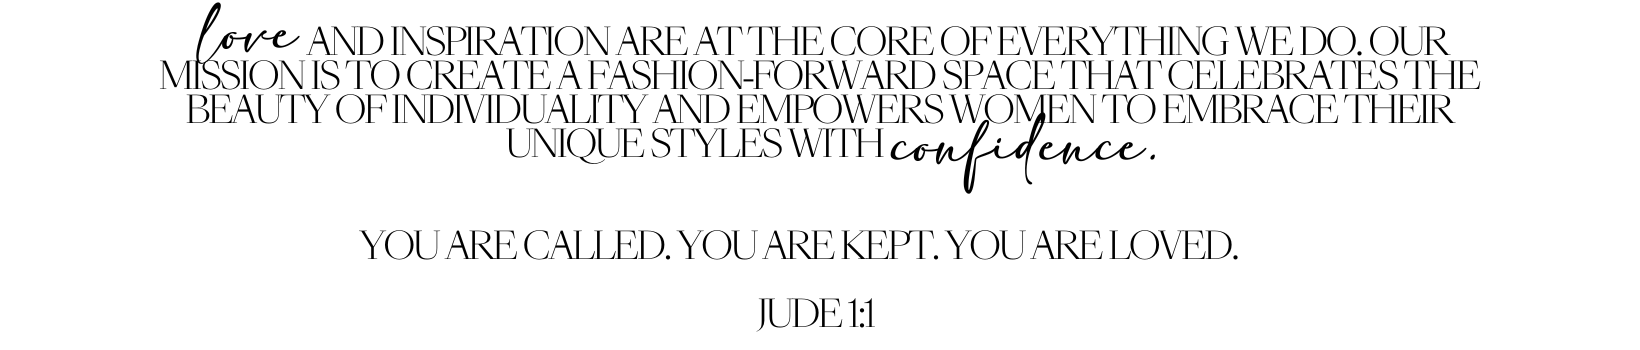 love AND INSPIRATION ARE AT THE CORE OF EVERYTHING WE DO. OUR
MISSION IS TO CREATE A FASHION-FORWARD SPACE THAT CELEBRATES THE
BEAUTY OF INDIVIDUALITY AND EMPOWERS WOMEN TO EMBRACE THEIR
UNIQUE STYLES WITH confidence.
YOU ARE CALLED. YOU ARE KEPT. YOU ARE LOVED.
JUDE 1:1